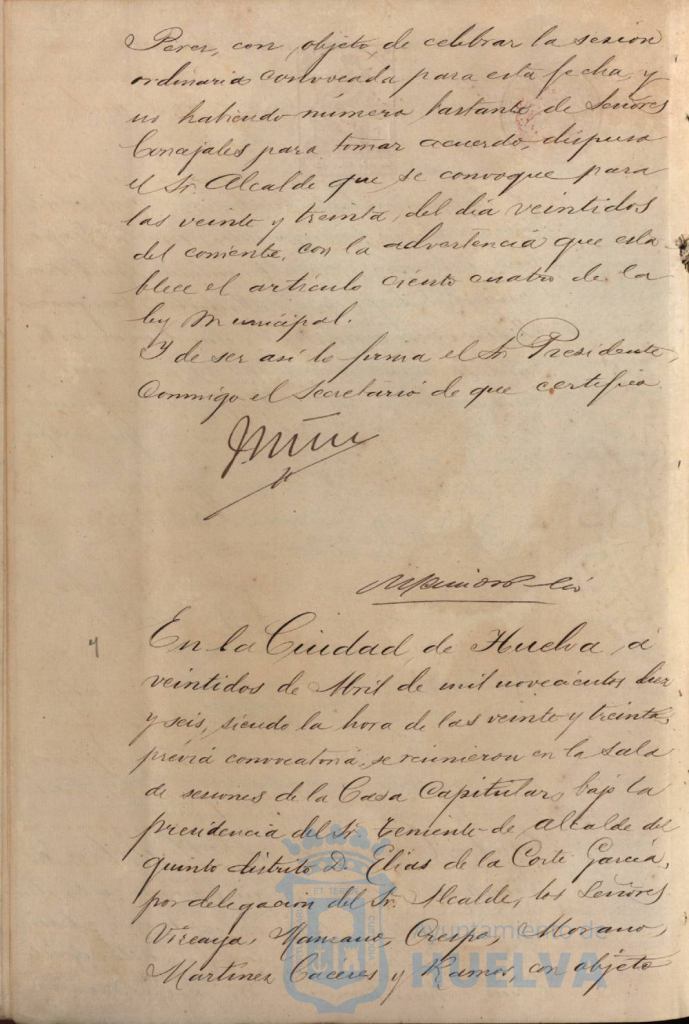 Perez, con objeto de celebrar la sesion
ordinaria convocada para esta fecha, y
no habiendo número bastante de Señores
Concejales para tomar acuerdo, dispuso
el Sr. Alcalde que se convoque para
las veinte y treinta, del dia veintidos
del corriente, con la advertencia que esta
blece el artículo ciento cuatro de la
ley Municipal.
Y de ser asi lo firma el Sr. Presidente,
conmigo el Secretario de que certifico
4
En la Ciudad de Huelva, á
veintidos de Abril de mil novecientos diez
y seis, siendo la hora de las veinte y treinta,
prévia convocatoria, se reunieron en la sala
de sesiones de la Casa Capitular, bajo la
presidencia del Sr. Teniente de Alcalde del
quinto distrito D. Elias de la Corte Garcia,
por delegacion del Sr. Alcalde, los Señores
Vizcaya, Manzano, Crespo, Morano,
Martinez Caceres y Ramos, con objeto
Ayuntamiento de
HUELVA